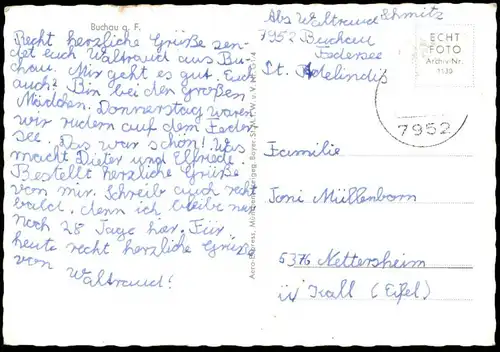 Buchau a. F.
Recht herzliche Grüße sen-
det euch Waltraud aus Bu-
chau. Mir geht es gut. Euch
auch? Bin bei den großen
Mädchen. Donnerstag waren
wir rudern auf dem Feder-
see. Das war schön! Was
macht Dieter und Elfriede.
Bestellt herzliche Grüße
von mir. Schreib auch recht
bald, denn ich bleibe nur
noch 28 Tage hier. Für
heute recht herzliche Grüße
von Waltraud!
Abs Waltraud Schmitz
7952 Buchau
Federsee
St. Adelindis
ECHT
FOTO
Archiv-Nr.
7952
Familie
Toni Müllenborn
5376 Nettersheim
üb Kall (Eifel)